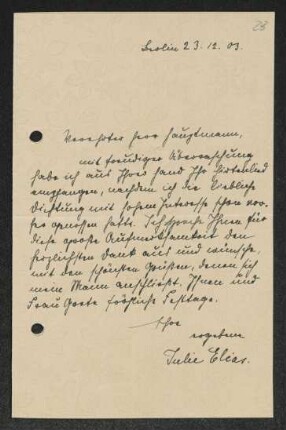 23
Berlin 23.12.03.
Verehrter Herr Hauptmann,
mit freudiger Überraschung
habe ich aus Ihrer Hand Ihr Hirtenlied
empfangen, nachdem ich die liebliche
Dichtung mit hohem Interesse schon vor-
her genossen hatte. Ich spreche Ihnen für
diese große Aufmerksamkeit den
herzlichsten Dank aus und wünsche,
mit den schönsten Grüßen, denen sich
mein Mann anschließt, Ihnen und
Frau Grete fröhliche Festtage.
Ihre
ergebene
Julie Elias.